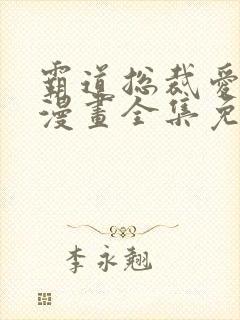 霸道总裁爱
漫畫全集免
李永翘